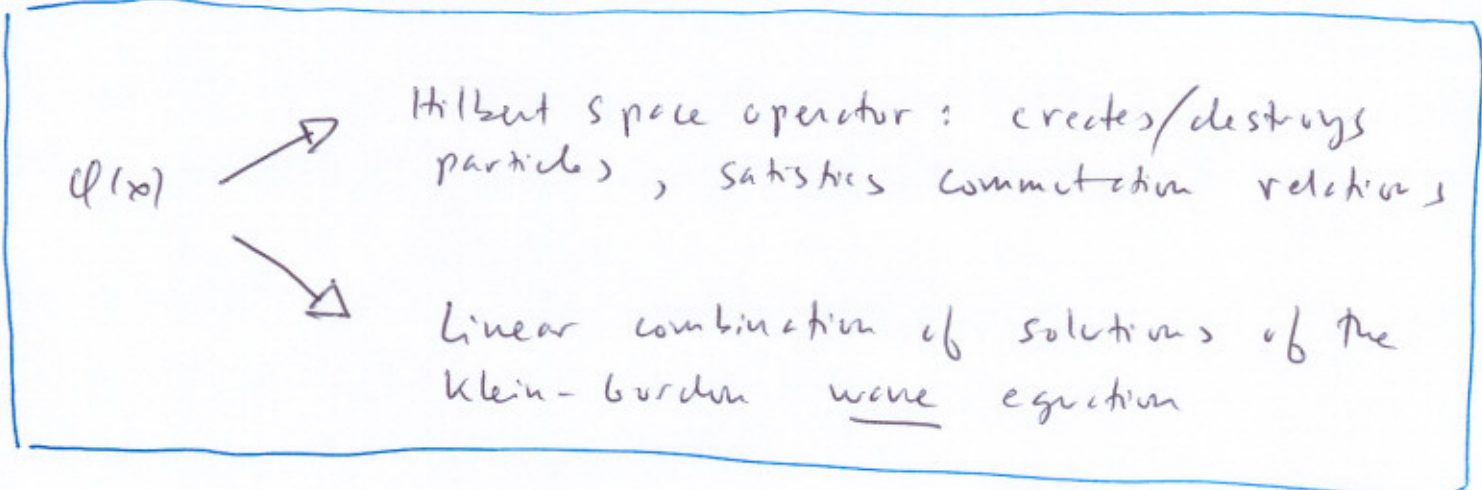 Hilbert space operator : creates/destroys
φ(x) particles, satisfies commutation relations
Linear combination of solutions of the
Klein-Gordon wave equation